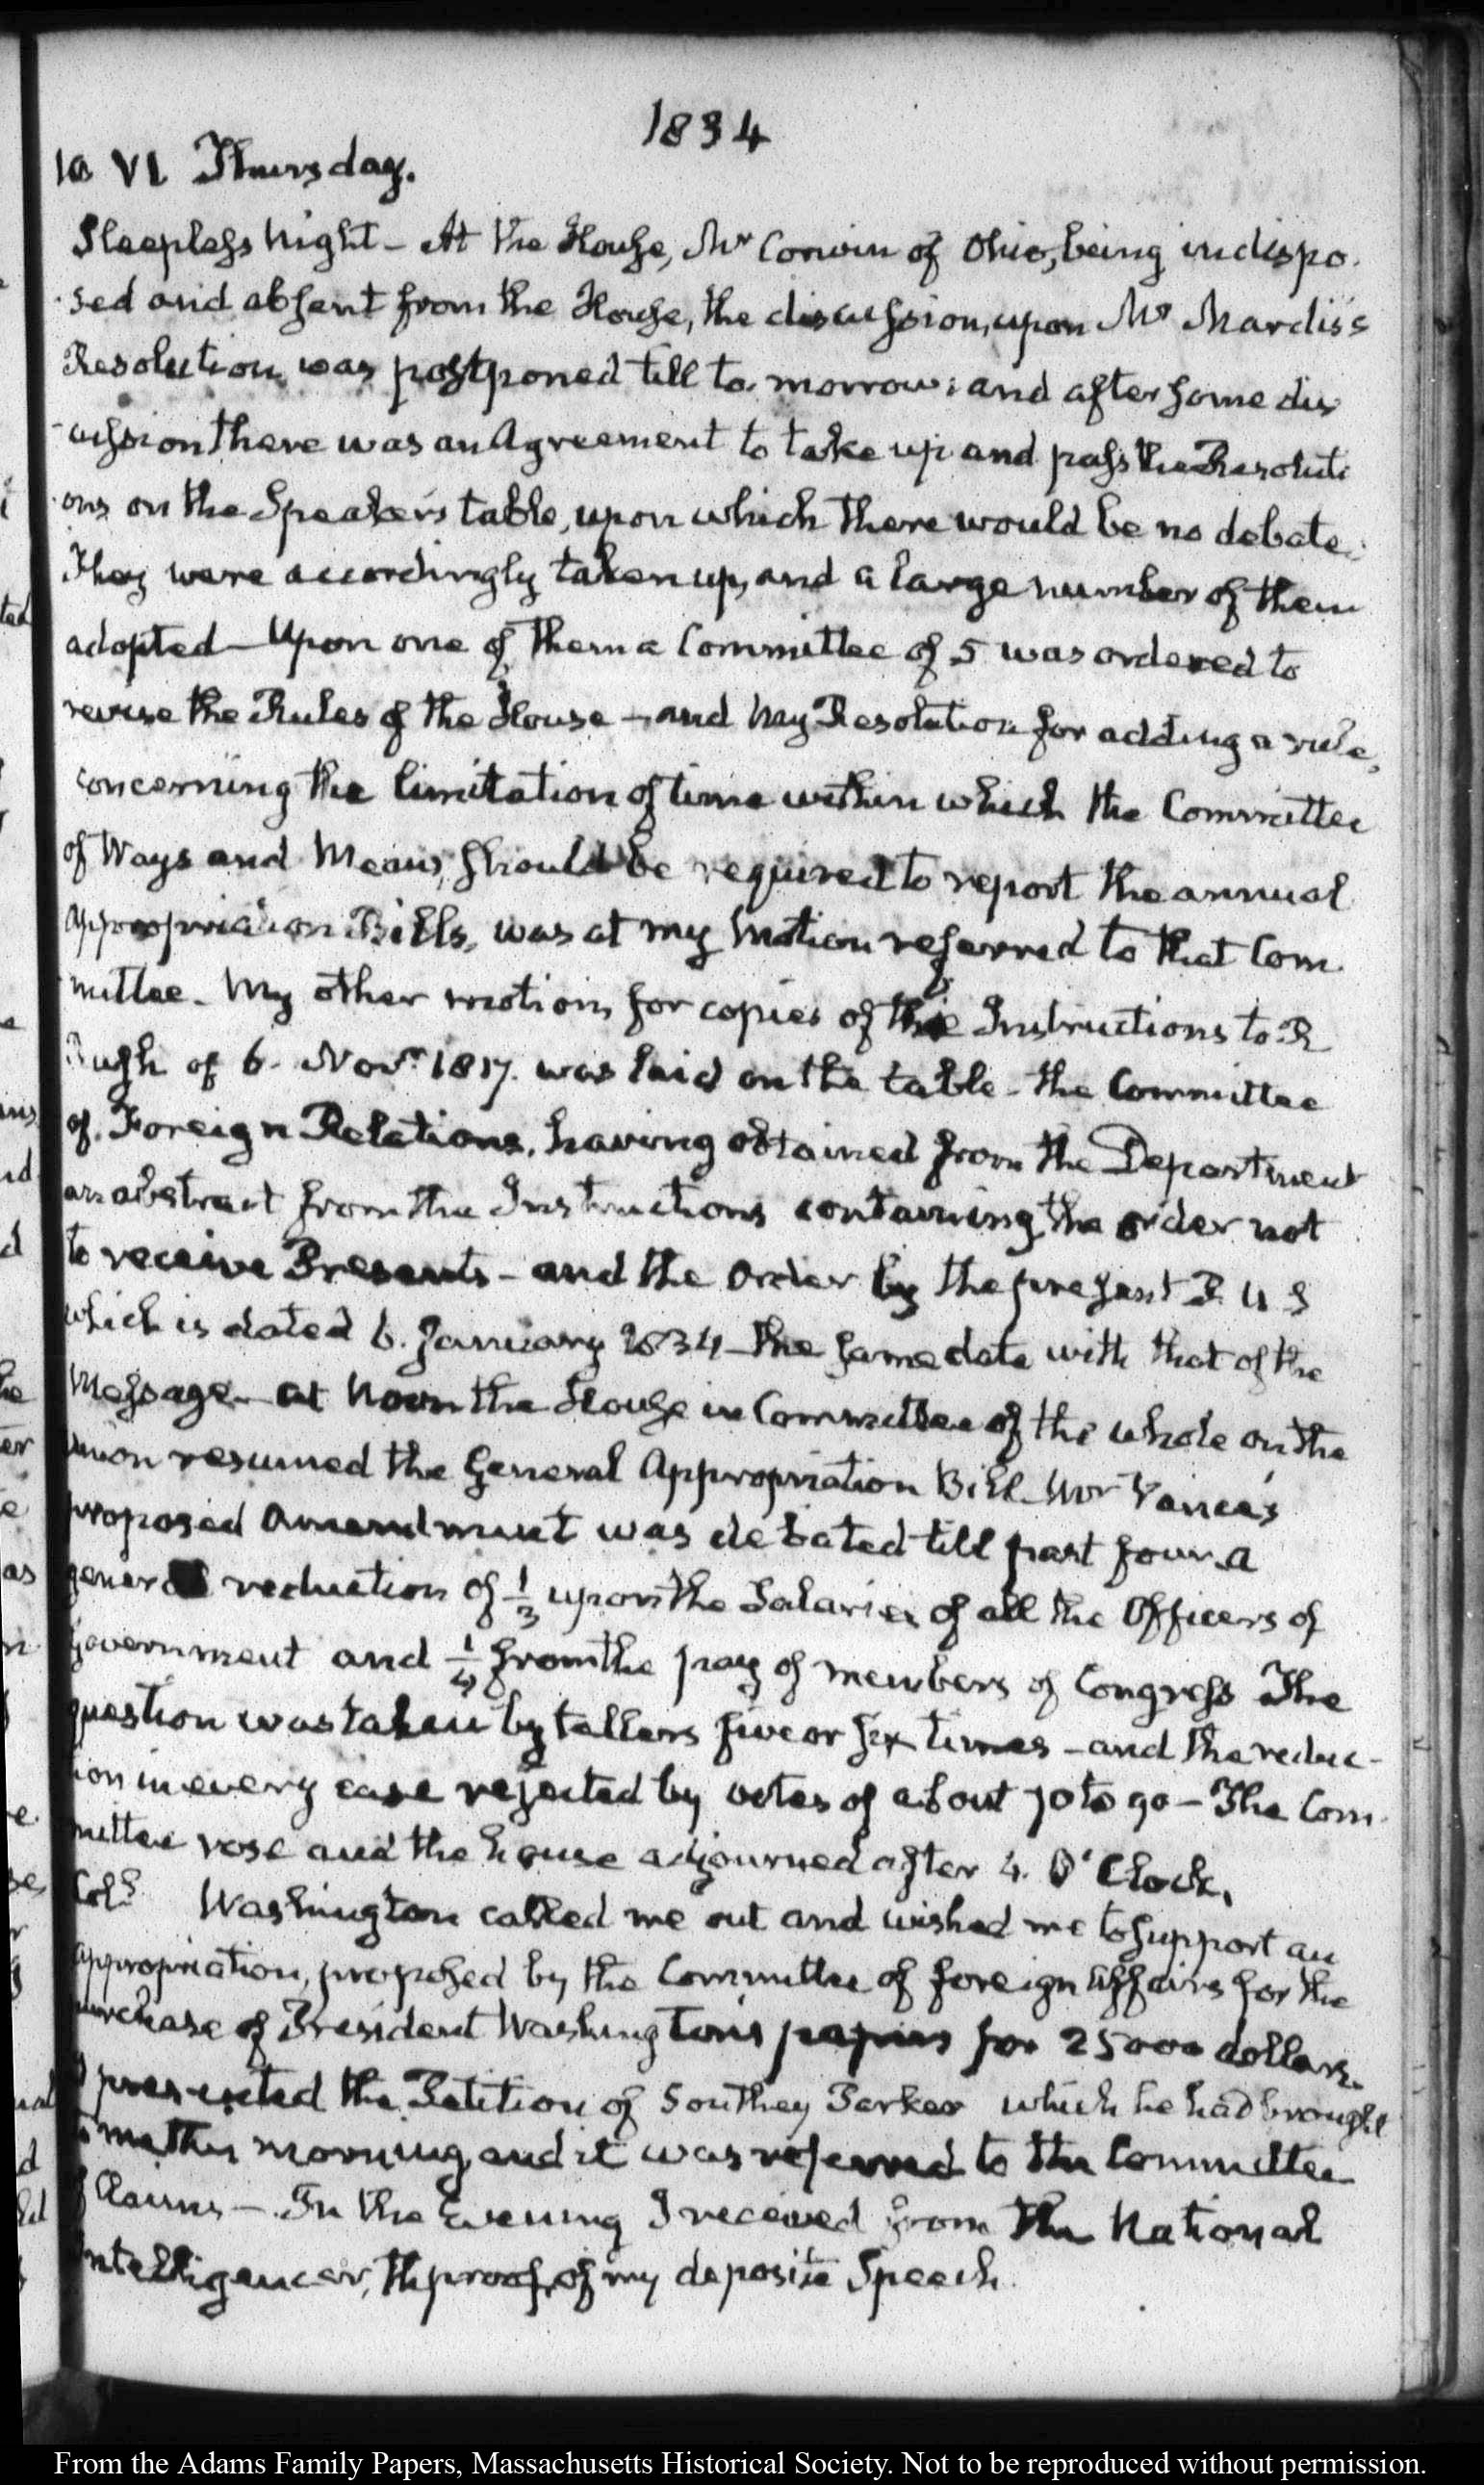 1834
10 VI. Thursday.
Sleepless Night – At the House, Mr Corwin of Ohio, being indispo-
-sed and absent from the House, the discussion, upon Mr Mardis's
Resolution was postponed till to-morrow: and after some dis
-cussion there was an Agreement to take up and pass the Resoluti
-ons on the Speaker's table, upon which there would be no debate.
They were accordingly taken up, and a large number of them
adopted – Upon one of them a Committee of 5 was ordered to
revise the Rules of the House – and my Resolution for adding a rule,
concerning the limitation of time within which the Committee
of Ways and Means, should be required to report the annual
appropriation Bills, was at my motion referred to that Com-
mittee. My other motion for copies of the Instructions to R
Rush of 6. Novr 1817. was laid on the table – the Committee
of Foreign Relations, having obtained from the Department
an abstract from the Instructions containing the order not
to receive Presents – and the order by the present P. U S
which is dated 6. January 1834 – the same date with that of the
Message – at Noon the House in Committee of the whole on the
Union resumed the General Appropriation Bill – Mr Vance's
proposed Amendment was debated till past four. A
general reduction of 1/3 upon the Salaries of all the Officers of
Government and 1/4 from the pay of members of Congress The
question was taken by tellers five or six times – and the reduc-
tion in every case rejected by votes of about 70 to 90 – The Com-
mittee rose and the house adjourned after 4. O'Clock.
Coll Washington called me out and wished me to support an
appropriation, proposed by the Committee of foreign Affairs for the
purchase of President Washington's papers for 25000 dollars.
I presented the Petition of Southey Parker which he had brought
to me this morning, and it was referred to the Committee
of Claims – In the Evening I received from the National
Intelligencer, the proof, of my deposite Speech.
From the Adams Family Papers, Massachusetts Historical Society. Not to be reproduced without permission.